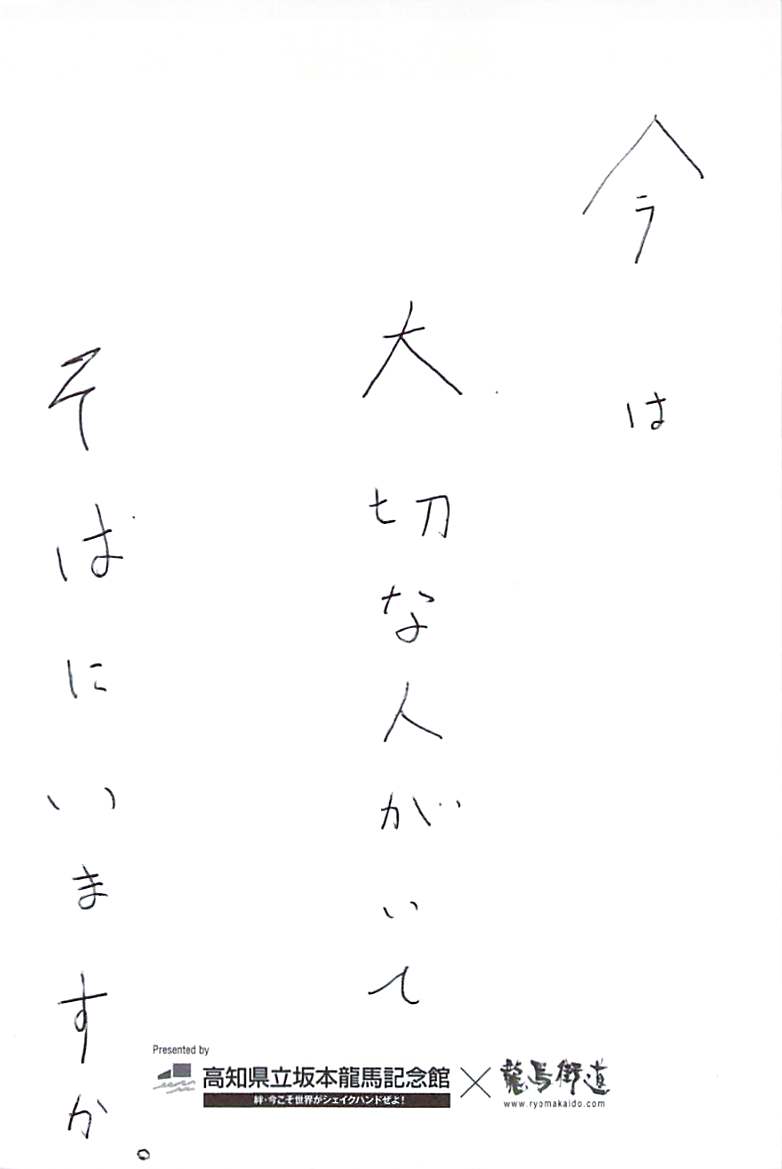 今は
大切な人がいて
そばにいますか。
Presented by
高知県立坂本龍馬記念館
絆・今こそ世界がシェイクハンドぜよ!
×
龍馬街道
www.ryomakaido.com